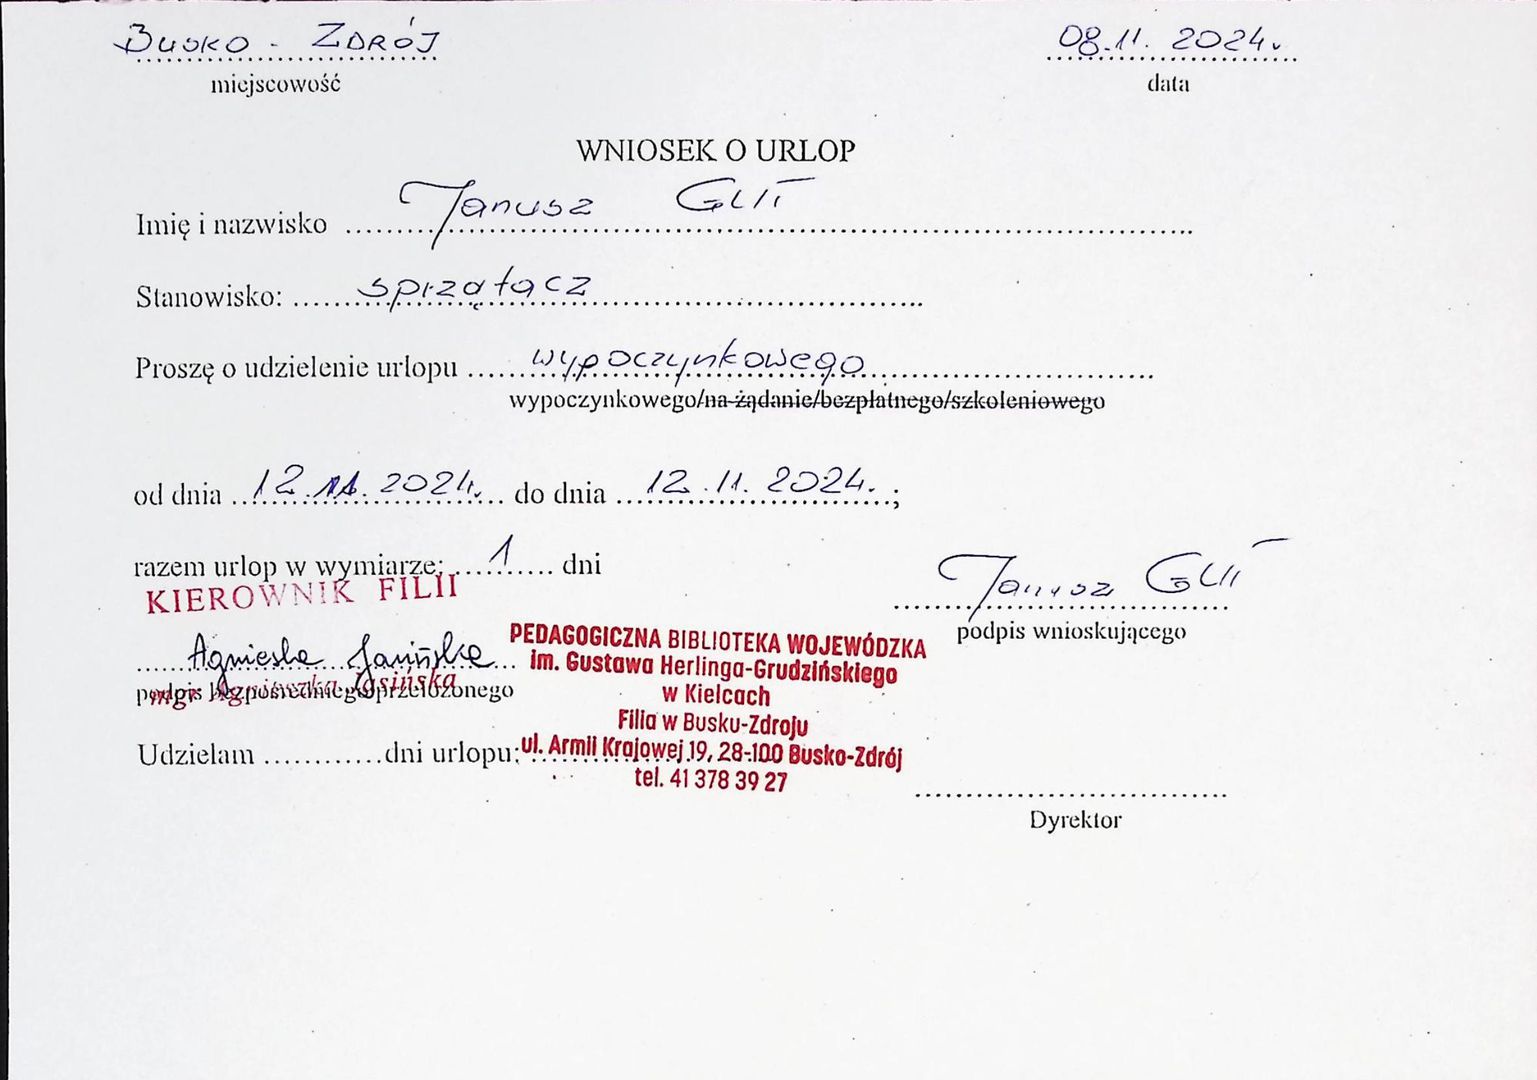 Busko - Zdrój 08.11.2024r.
miejscowość data
WNIOSEK O URLOP
Imię i nazwisko Janusz
Stanowisko: sprzątacz
Proszę o udzielenie urlopu wypoczynkowego
wypoczynkowego/na żądanie/bezpłatnego/szkoleniowego
od dnia 12.11.2024r. do dnia 12.11.2024r. ;
razem urlop w wymiarze: 1 dni
KIEROWNIK FILII
Janusz
podpis wnioskującego
Agnieszka Jasińska
mgr Agnieszka Jasińska
podpis bezpośredniego przełożonego
PEDAGOGICZNA BIBLIOTEKA WOJEWÓDZKA
im. Gustawa Herlinga-Grudzińskiego
w Kielcach
Filia w Busku-Zdroju
ul. Armii Krajowej 19, 28-100 Busko-Zdrój
tel. 41 378 39 27
Udzielam ............ dni urlopu:
Dyrektor